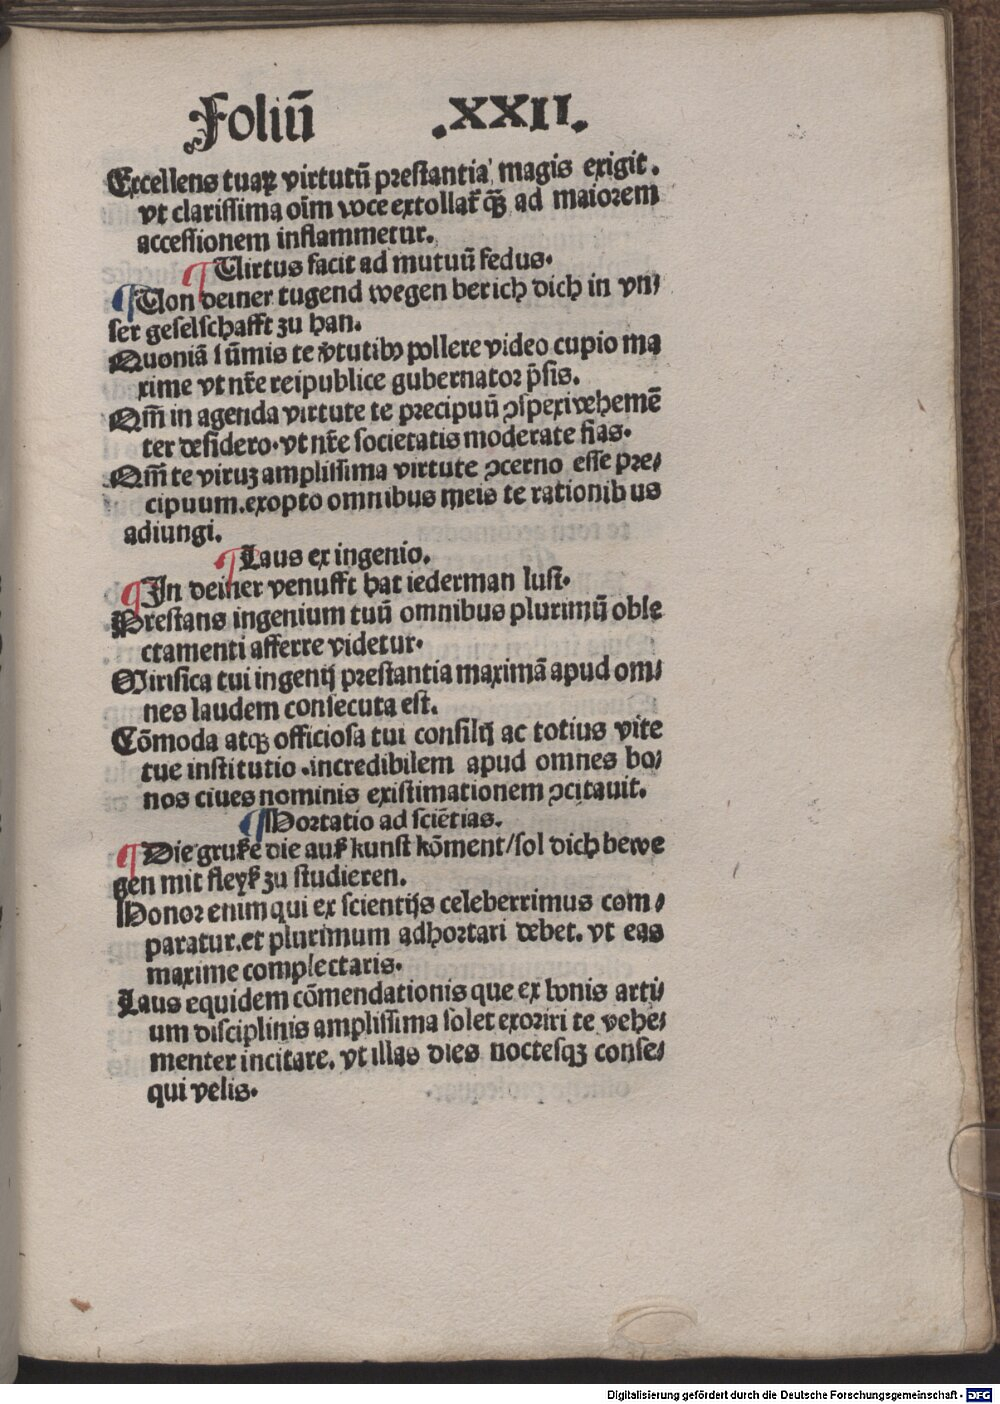 Foliū .XXII.
Excellens tuaꝝ virtutū prestantia magis exigit.
vt clarissima oīm voce extollat̄ qȝ̄ ad maiorem
accessionem inflammetur.
¶ Uirtus facit ad mutuū fedus.
¶ Uon deiner tugend wegen ber ich dich in vn⸗
ser geselschafft zu han.
Quoniā sūmis te v̄tutibꝰ pollere video cupio ma
xime vt nr̄e reipublice gubernator p̄sis.
Qm̄ in agenda virtute te precipuū ↄspexi vehemē
ter desidero. vt nr̄e societatis moderate fias.
Qm̄ te viruȝ amplissima virtute ↄcerno esse pre⸗
cipuum. exopto omnibus meis te rationib us
adiungi.
¶ Laus ex ingenio.
¶ In deiner venufft hat iederman lust.
Prestans ingenium tuū omnibus plurimū oble
ctamenti afferre videtur.
Mirifica tui ingenij prestantia maximā apud om⸗
nes laudem consecuta est.
Cōmoda atqȝ officiosa tui consilij ac totius vite
tue institutio .incredibilem apud omnes bo⸗
nos ciues nominis existimationem ↄcitauit.
¶ Hortatio ad sciētias.
¶ Die gruße die auß kunst kōment/sol dich bewe
gen mit fleyß zu studieren.
Honor enim qui ex scientijs celeberrimus com⸗
paratur. et plurimum adhortari debet. vt eas
maxime complectaris.
Laus equidem cōmendationis que ex bonis arti⸗
um disciplinis amplissima solet exoriri te vehe⸗
menter incitare. vt illas dies noctesqȝ conse⸗
qui velis.
Digitalisierung gefördert durch die Deutsche Forschungsgemeinschaft - DFG